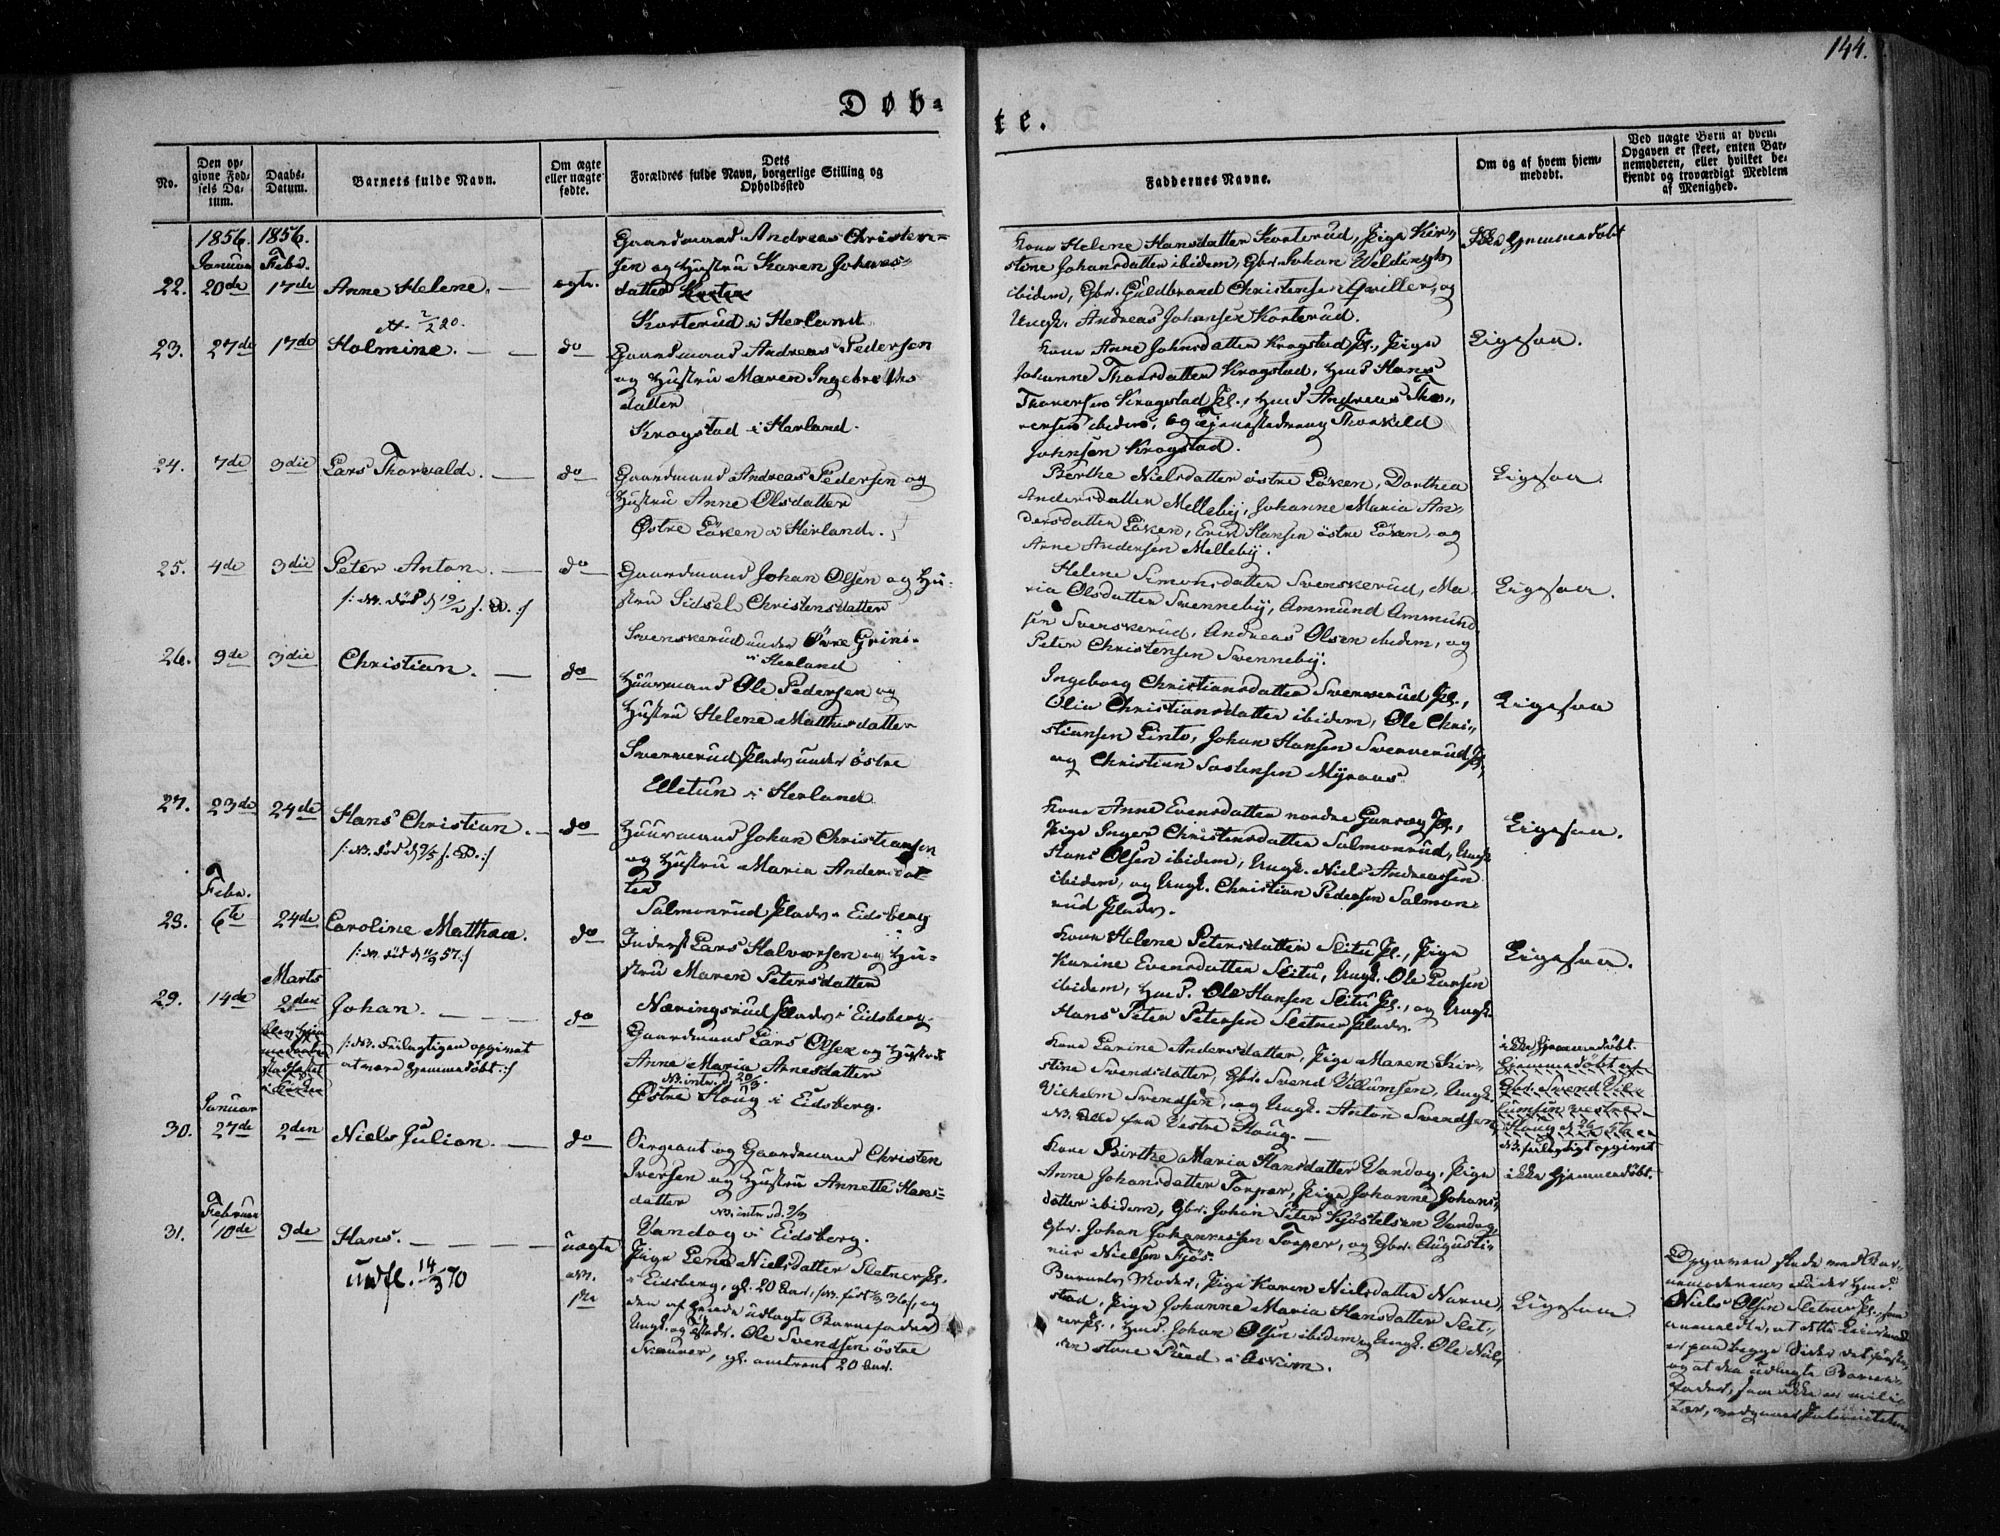 144.
Døb-
te.
No.
Den op-
givne Fød-
sels Da-
tum.
Daabs-
Datum.
Barnets fulde Navn.
Om ægte
eller uægte
fødte.
Dets
Forældres fulde Navn, borgerlige Stilling og
Opholdsted
Faddernes Navne.
Om og af hvem hjem-
medøbt.
Ved uægte Børn af hvem
Opgaven er skeet, enten Bar-
nemoderen, eller hvilket be-
kjendt og troværdigt Medlem
af Menighed.
1856. 1856.
Januar Febr.
22. 20de 17de Anne Helene. ægte.
Gaardmand Andreas Christen-
sen og Hustru Karen Johans-
datter
Korterud i Herland
Kone Helene Hansdatter Korterud, Pige Kir-
stine Johansdatter ibidem, Gbr. Johan
ibidem, Gbr. Guldbrand Christensen Qviller, og
Ungk. Andreas Johansen Korterud.
Ikke hjemmedøbt
23. 27de 17de Holmine. do
Gaardmand Andreas Pedersen
og Hustru Maren Ingebreths
datter
Krogstad i Herland.
Kone Anne Johnsdatter Krogstad Pl., Pige
Johanne Thorsdatter Krogstad, Hmd Hans
Thorersen Krogstad Pl., Hmd Andreas Tho-
rersen ibidem, og Thorkild
Johnsen Krogstad.
Ligesaa.
24. 7de 3die Lars Thorvald. do
Gaardmand Andreas Pedersen og
Hustru Anne Olsdatter
Østre Löken i Herland.
Berthe Nielsdatter östre Löken, Dorthea
Andersdatter Melleby, Johanne Maria An-
dersdatter Löken, Erik Hansen östre Löken, og
Arne Andersen Melleby.
Ligesaa.
25. 4de 3die Peter Anton. do
/: NB. död d 19/2 s. A. :/
Gaardmand Johan Olsen og Hu-
stru Sidsel Christensdatter
Svenskerud under Övre Grini
i Herland
Helene Simonsdatter Svenskerud, Ma-
ria Olsdatter Svenneby, Ammund Ammund-
sen Svenskerud, Andreas Olsen ibidem, og
Peter Christensen Svenneby.
Ligesaa.
26. 9de 3die Christian. do
Huusmand Ole Pedersen og
Hustru Helene Matthisdatter
Sververud Plads under östre
Elletun i Herland
Ingeborg Christiansdatter Sververud Pl.,
Olia Christiansdatter ibidem, Ole Chri-
stiansen Linto, Johan Hansen Sververud Pl.,
og Christian Sostensen Myraas.
Ligesaa
27. 23de 24de Hans Christian. do
Huusmand Johan Christiansen
og Hustru Maria Andersdat-
ter
Salmonrud Plads i Eidsberg
Kone Anne Evensdatter nordre Gunsöy Pl.,
Pige Inger Christensdatter Salmonrud, Ungk.
Hans Olsen ibidem, Ungk. Niels Andreassen
ibidem, og Ungk. Christian Pedersen Salmon-
rud Plads.
Ligesaa.
Febr.
28. 6te 24de Caroline Matthea. do
Inderst Lars Halvorsen og Hu-
stru Maren Petersdatter
Næringsrud Plads i Eidsberg.
Kone Helene Petersdatter Slitu Pl., Pige
Karine Evensdatter Slitu, Ungk. Ole Larsen
ibidem, Hmd. Ole Hansen Slitu Pl., og Ungk.
Hans Peter Petersen Sletner Plads.
Ligesaa.
Marts
29. 14de 2den Johan. do
/: NB. Feilagtigen opgivet
at være hjemmedøbt :/
Gaardmand Lars Olsen og Hustru
Anne Maria Arnesdatter
NB. intr. d 20/3.
Østre Haug i Eidsberg.
Kone Larine Andersdatter, Pige Maren Kir-
stine Svendsdatter, Gbr. Svend Villumsen, Ungk.
Vilhelm Svendsen, og Ungk. Anton Svendsen,
NB. alle fra Vestre Haug.
ikke hjemmedøbt.
hjemmedøbt af
Gbr. Svend Vil-
lumsen vestre
NB. feilagtigt opgivet
Januar
30. 27de 2den Niels Julian. do
Sergeant og Gaardmand Christen
Iversen og Hustru Annette Hans-
datter
NB. intr. d. 9/3
Vandog i Eidsberg.
Kone Birthe Maria Hansdatter Vandog, Pige
Anne Johansdatter Torper, Pige Johanne Johans-
datter ibidem, Gbr. Johan Peter Kjöstelsen Vandog,
Gbr. Johan Johannessen Torper, og Gbr. Augusti-
nus Nielsen Fjös.
ikke hjemmedøbt.
Februar
31. 10de 9de Hans. uægte
udfl. 14/3 70
Pige Lene Nielsdatter Sletner Pl.
i Eidsberg, gl. 20 Aar, og
den af hende udlagte Barnefader
Ungk. Ole Svendsen östre
Skauner, gl. omtrent 20 Aar.
Barnets Moder, Pige Karen Nielsdatter Narve-
stad, Pige Johanne Maria Hansdatter Slet-
nerpl., Hmd. Johan Olsen ibidem og Ungk. Ole Niel-
sen i Askim.
Ligesaa
Opgaven skede ved Bar-
nemoderens Fader Hmd.
Niels Olsen Sletner Pl., som
anmeldte, at dette Leiermaal
er paa begge Sider det første,
og at den udlagte Barne-
fader, som ikke er mili-
tær, vedgaaer Paterniteten